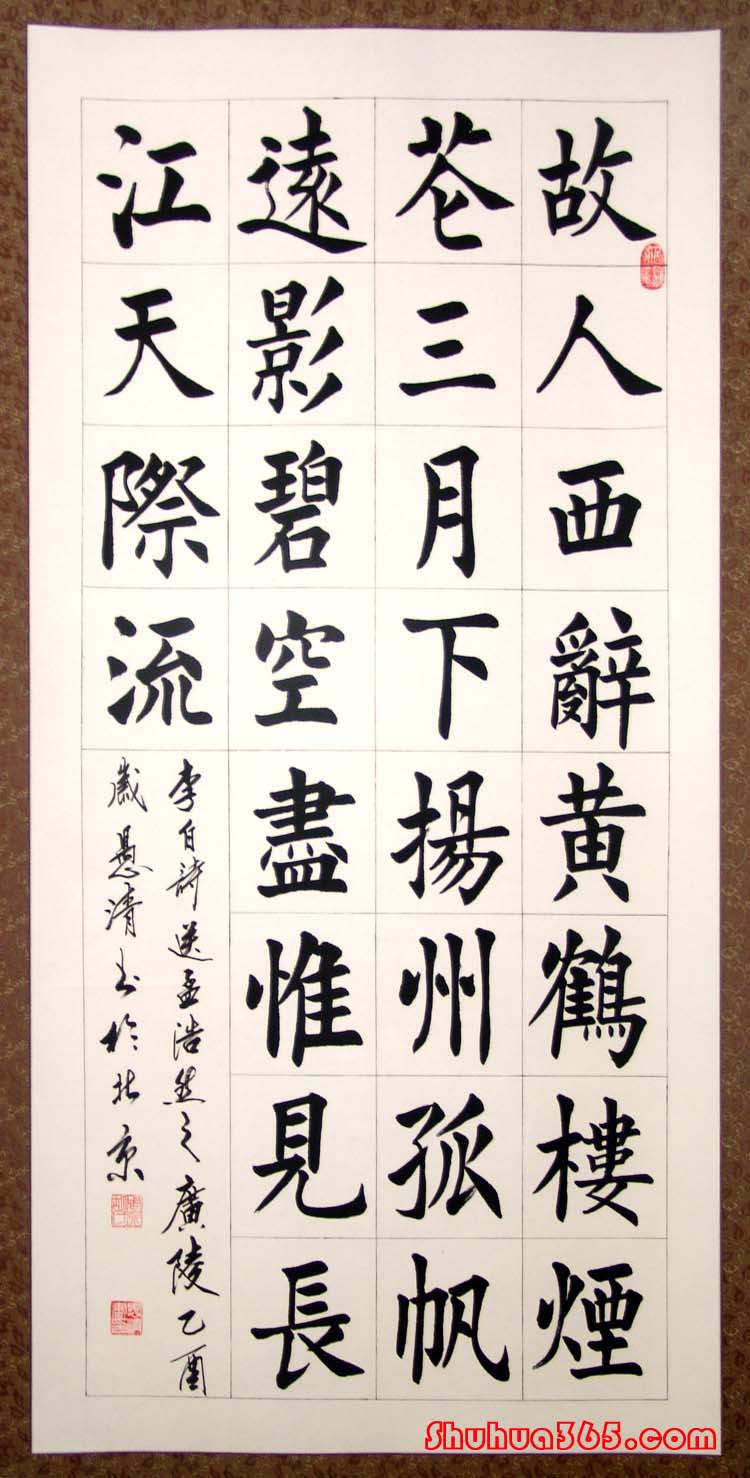 故人西辭黄鶴樓煙
花三月下揚州孤帆
遠影碧空盡惟見長
江天際流
李白詩送孟浩然之廣陵乙酉
歲惠清书於北京
Shuhua365.com